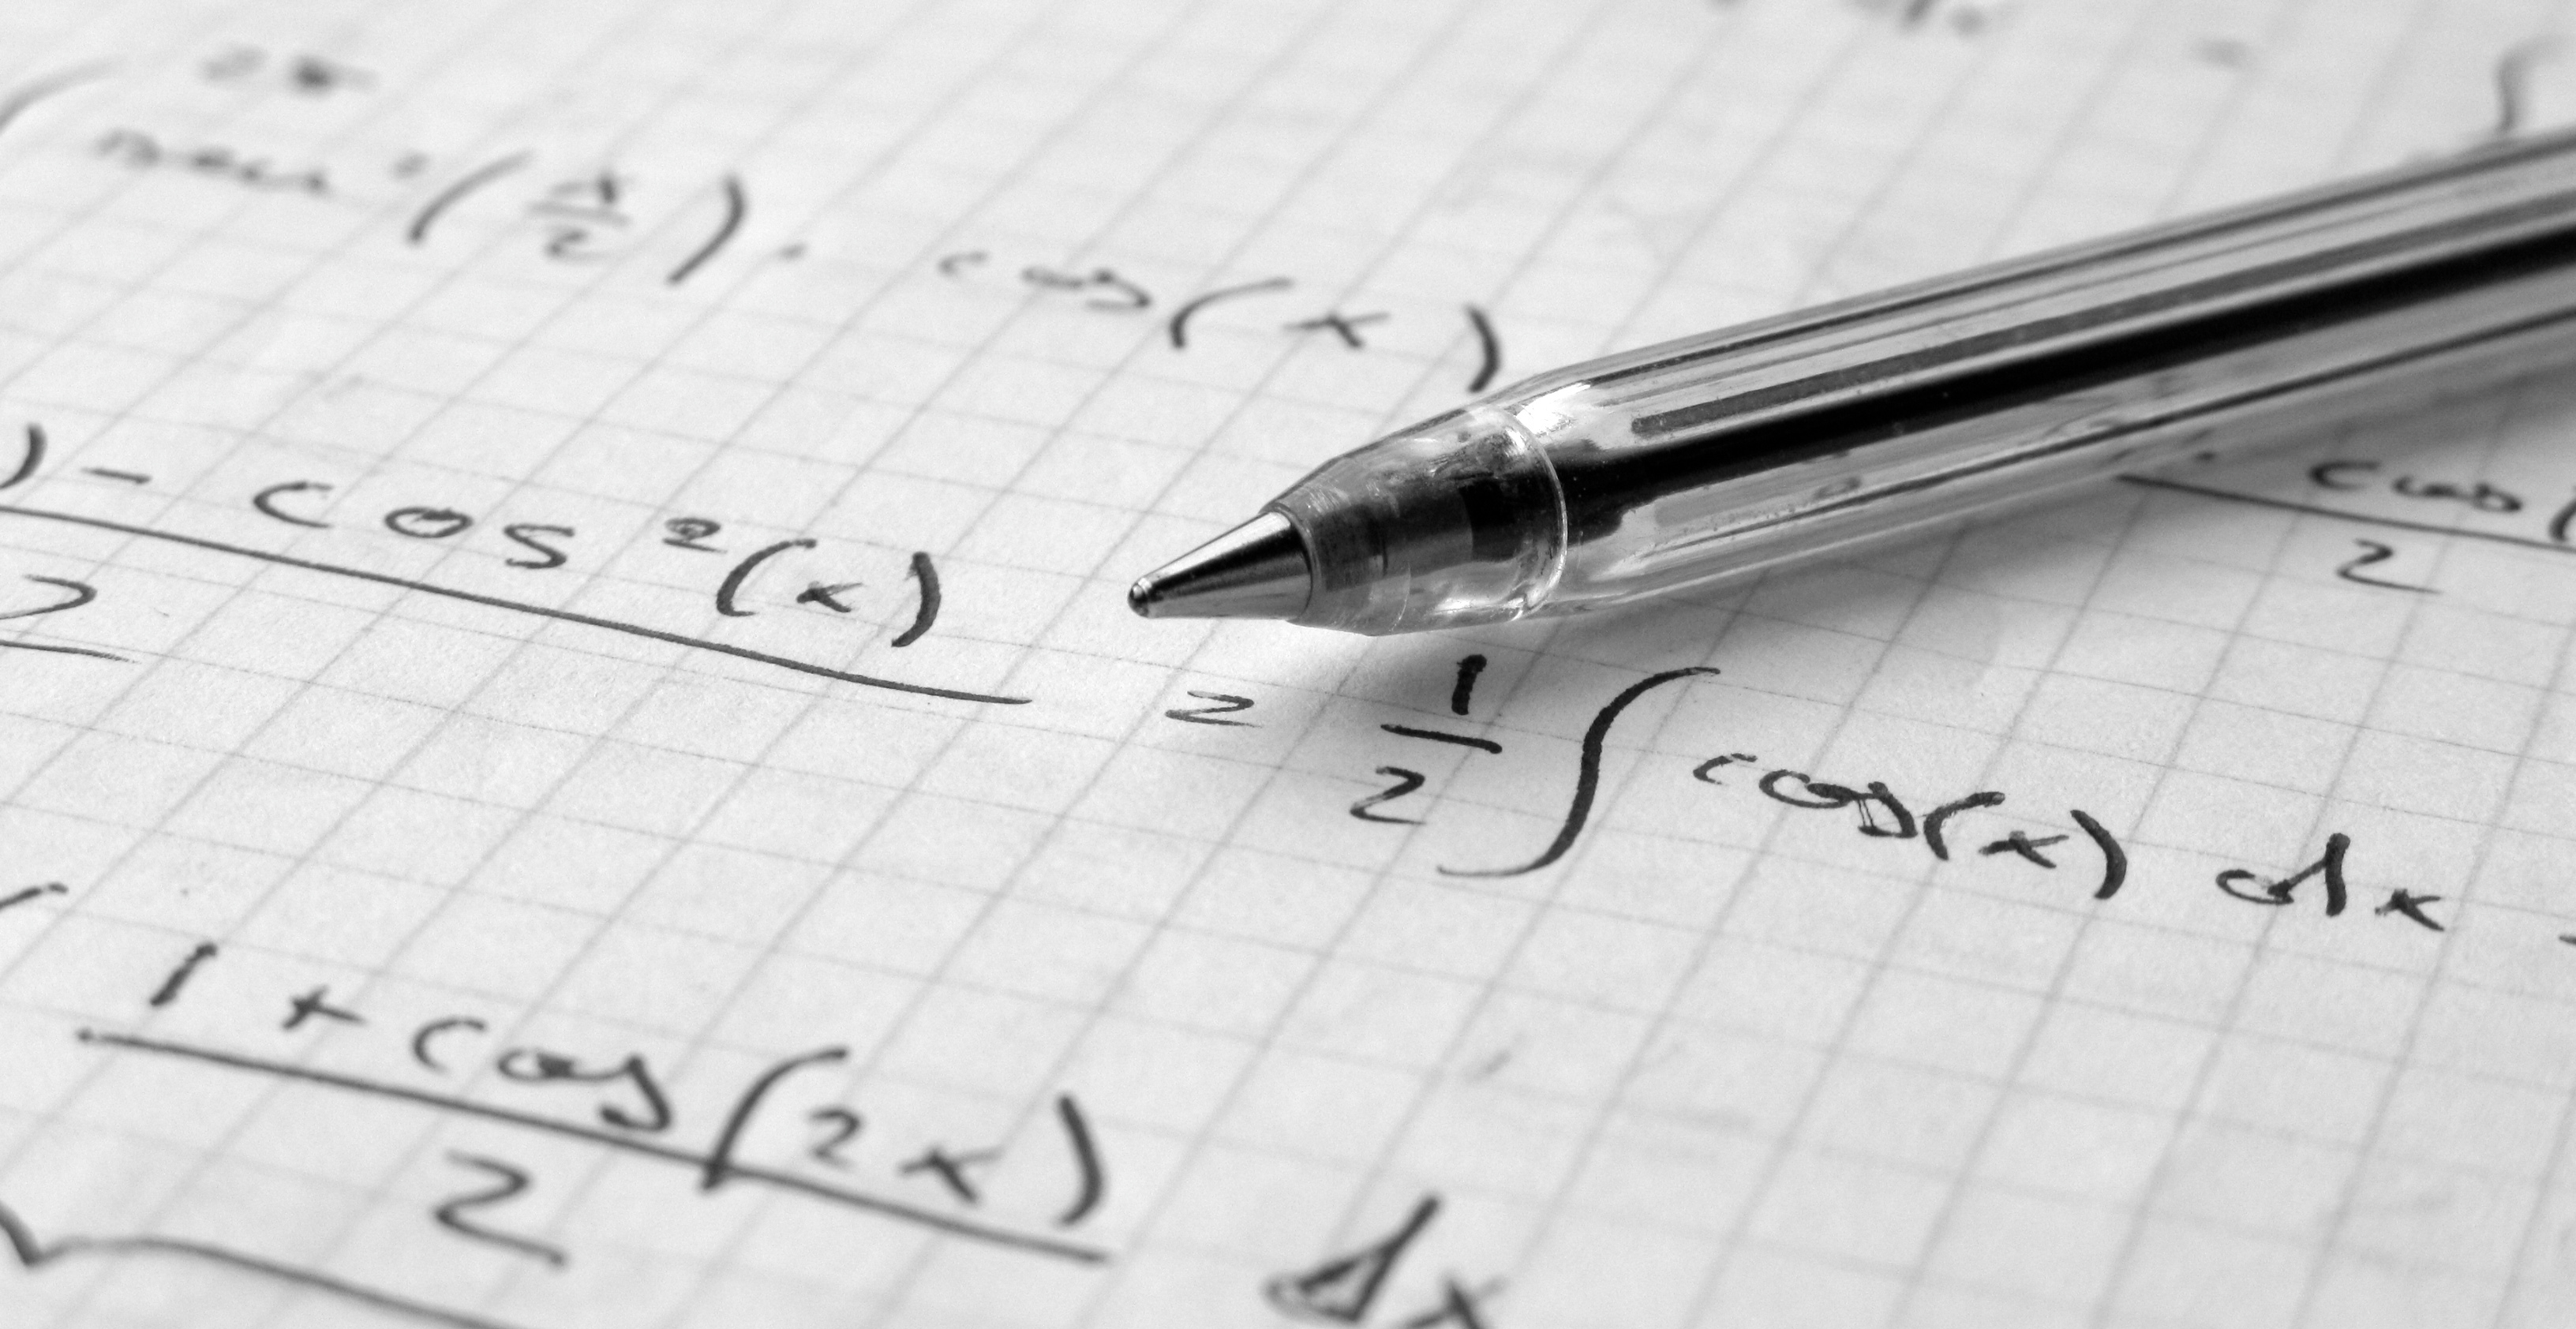 ²(x/2) · cos(x)
) - cos²(x) = 1/2 ∫ cos(x) dx
2
cos(
2
1 + cos(2x)
2
dx